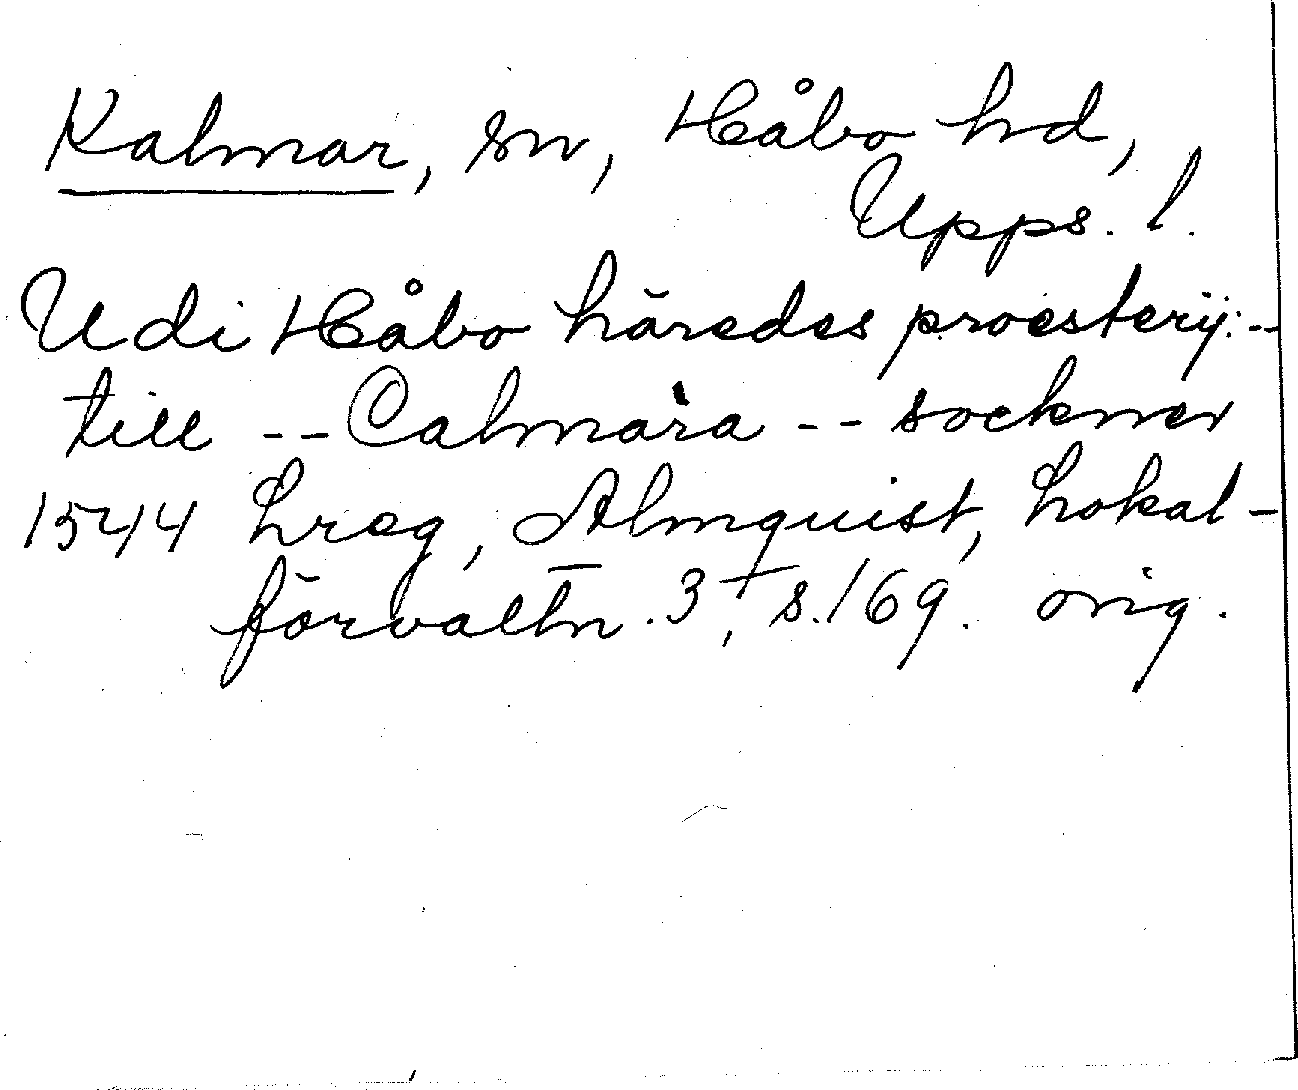 Kalmar, sn, Håbo hd,
Upps. l.
Udi Håbo häredes proesterij: --
till -- Calmara -- sockner
1544 Lreg, Almquist, Lokal-
förvaltn. 3, s. 169. orig.